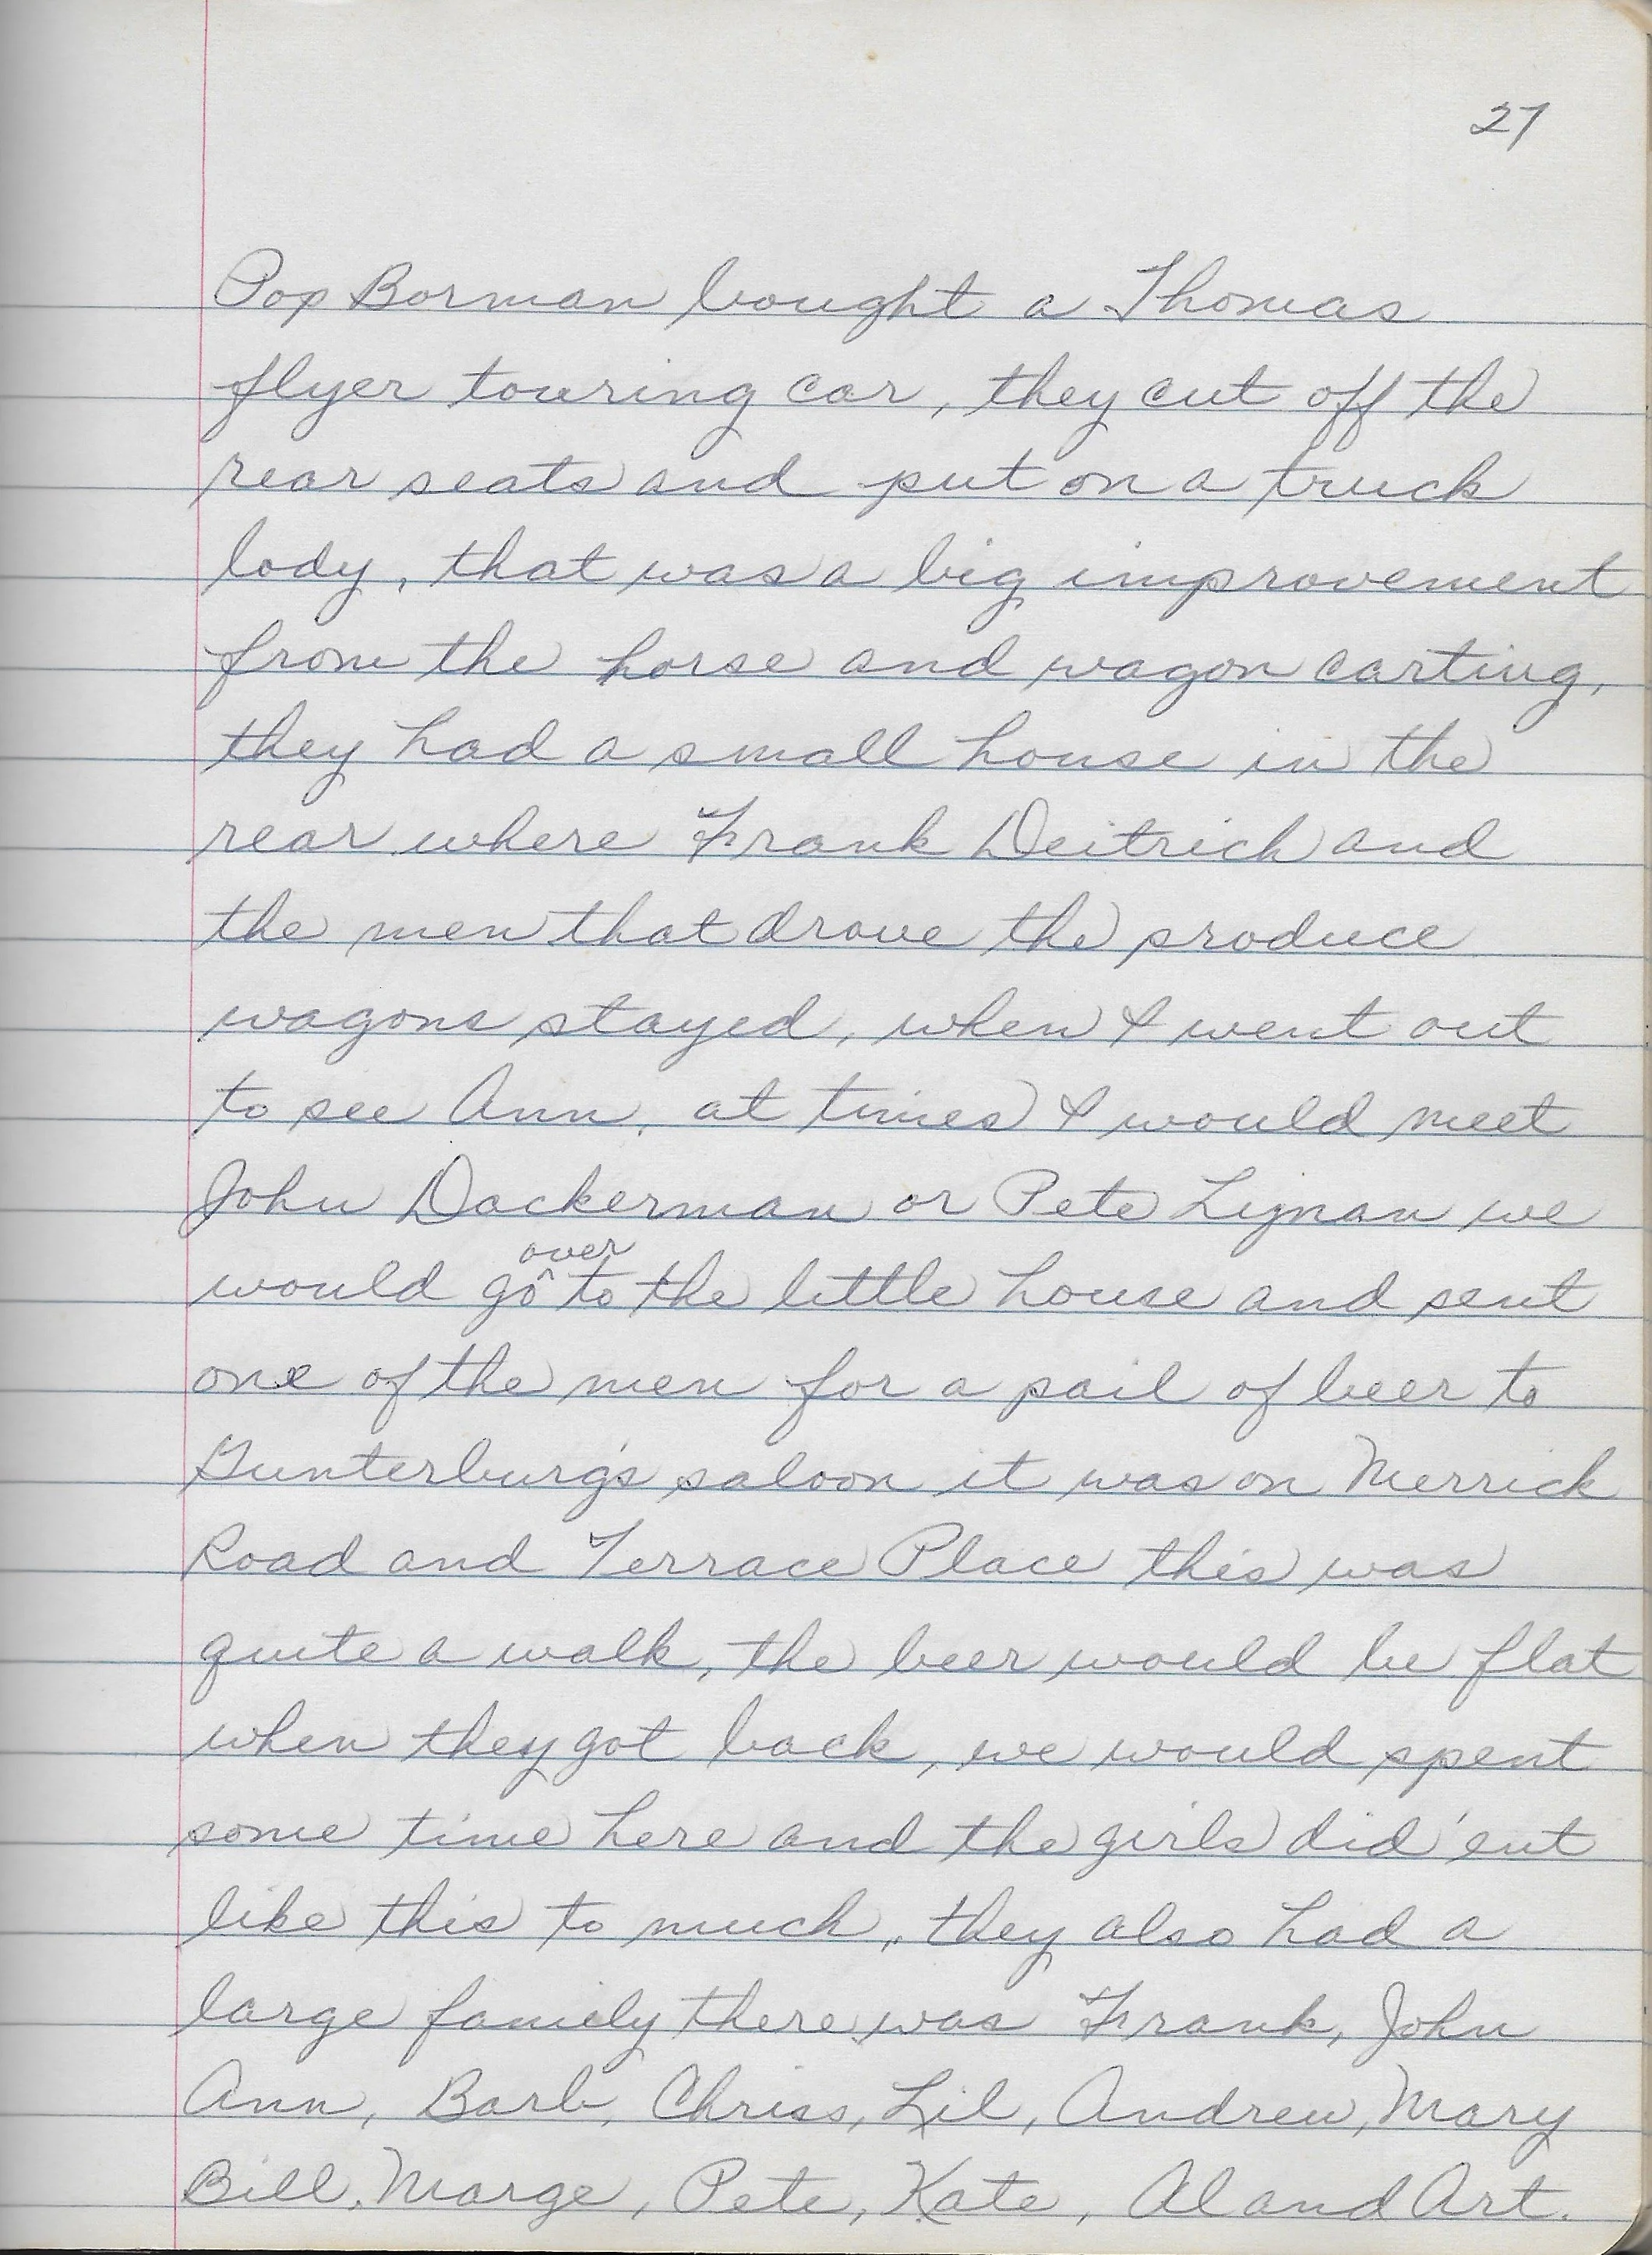 27
Pop Borman bought a Thomas
flyer touring car, they cut off the
rear seats and put on a truck
body, that was a big improvement
from the horse and wagon carting,
they had a small house in the
rear where Frank Deitrich and
the men that drove the produce
wagons stayed, when I went out
to see Ann, at times I would meet
John Dackerman or Pete we
would go over to the little house and sent
one of the men for a pail of beer to
Gunterburg's saloon it was on Merrick
Road and Terrace Place this was
quite a walk, the beer would be flat
when they got back, we would spent
some time here and the girls did'ent
like this to much, they also had a
large family there was Frank, John
Ann, Barb, Chriss, Lil, Andrew, Mary
Bill, Marge, Pete, Kate, Al and Art.